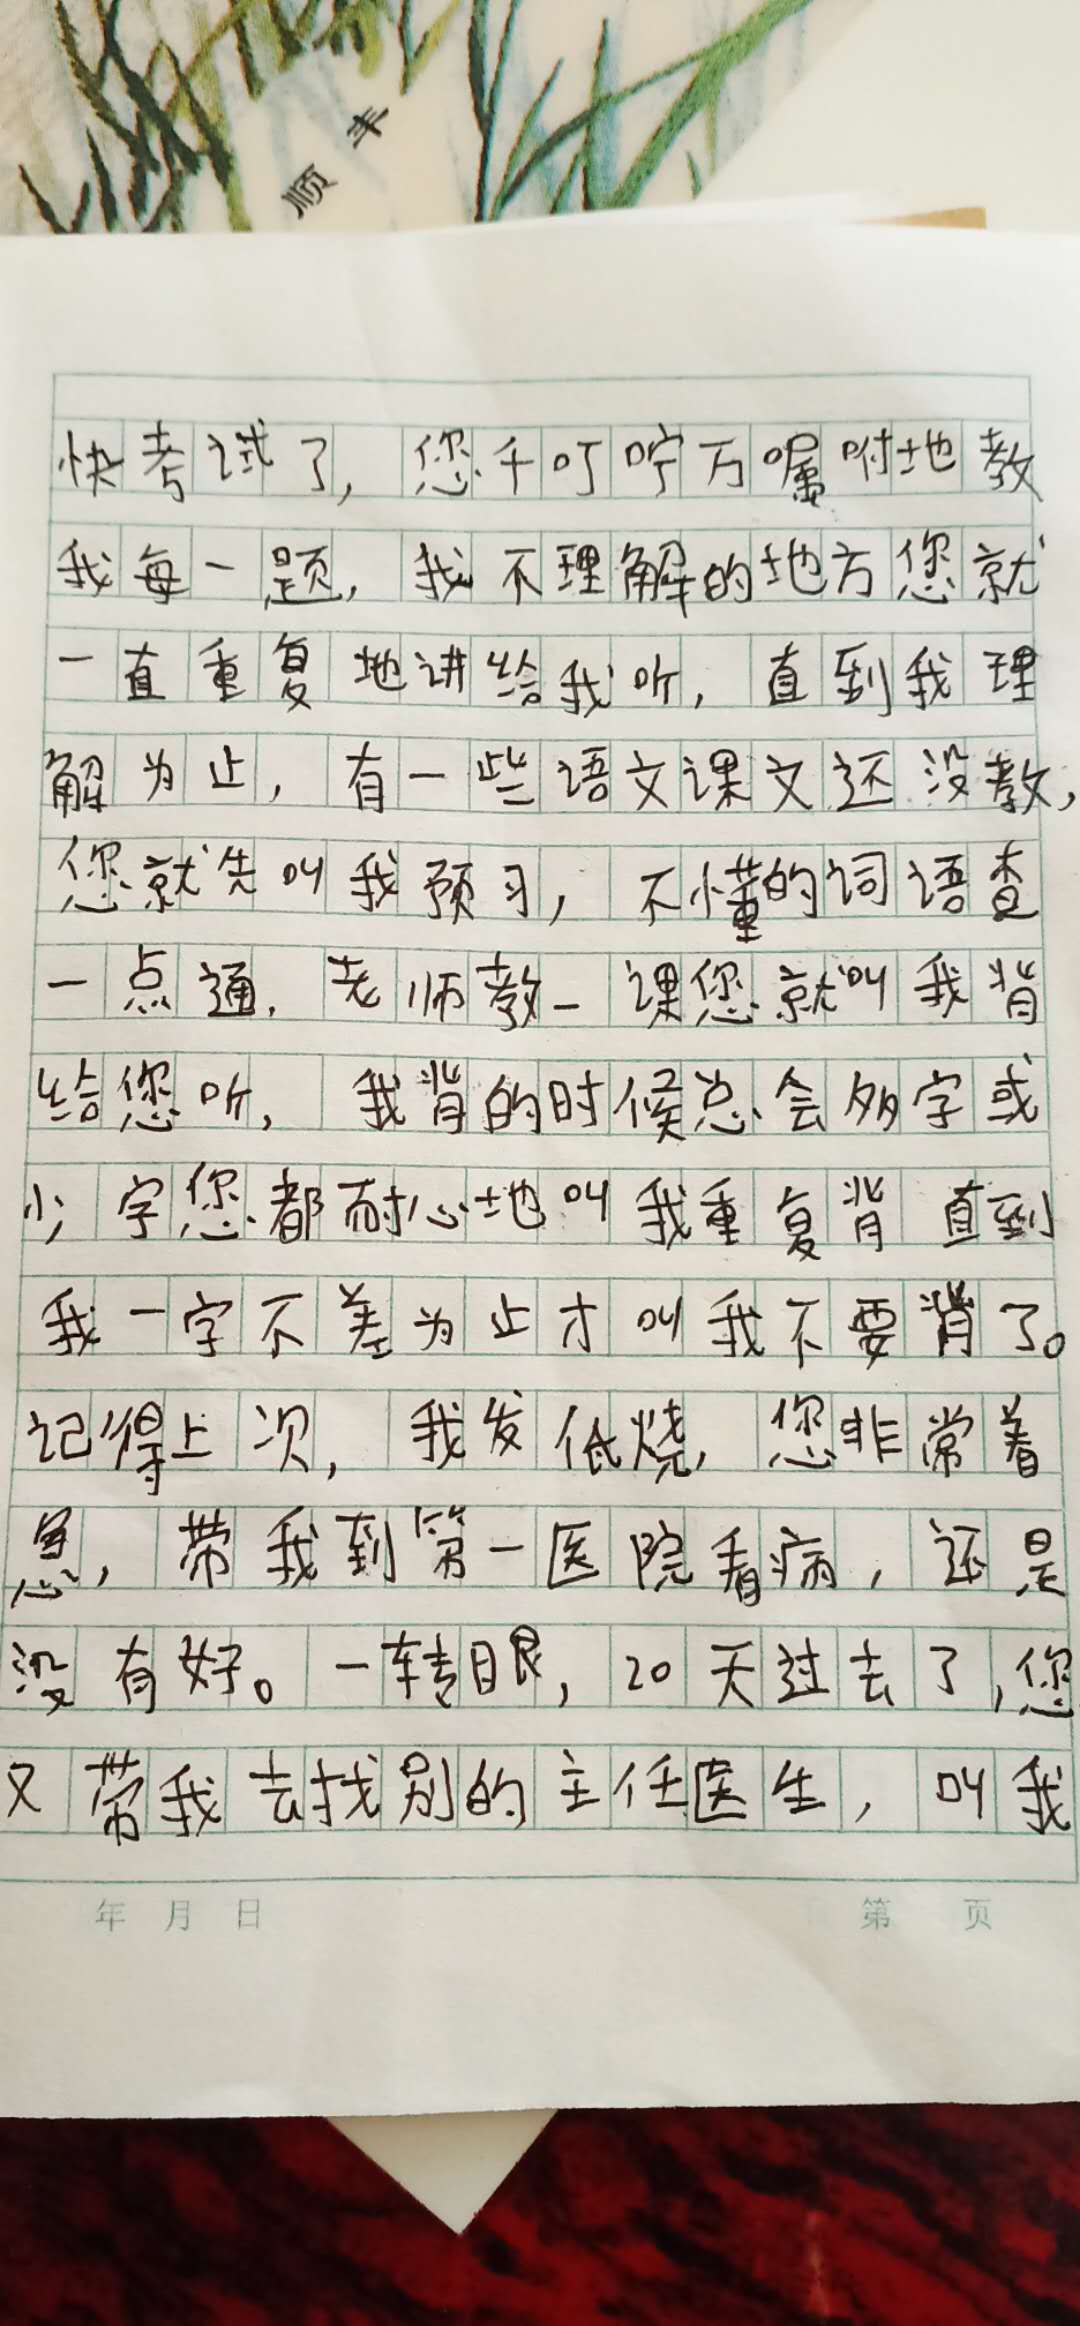 顺丰
快考试了，您千叮咛万嘱咐地教
我每一题，我不理解的地方您就
一直重复地讲给我听，直到我理
解为止，有一些语文课文还没教，
您就先叫我预习，不懂的词语查
一点通，老师教一课您就叫我背
给您听，我背的时候总会多字或
少字您都耐心地叫我重复背直到
我一字不差为止才叫我不要背了。
记得上次，我发低烧，您非常着
急，带我到第一医院看病，还是
没有好。一转眼，20天过去了，您
又带我去找别的主任医生，叫我
年 月 日 第 页